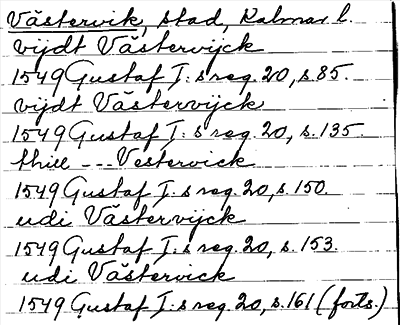 Västervik, stad, Kalmar l.
vijdt Västervijck
1549 Gustaf I:s reg. 20, s. 85.
vijdt Västervijck
1549 Gustaf I:s reg. 20, s. 135.
thill --- Vestervick
1549 Gustaf I:s reg. 20, s. 150.
udi Västervijck
1549 Gustaf I:s reg. 20, s. 153.
udi Västervick
1549 Gustaf I:s reg. 20, s. 161 (forts.)